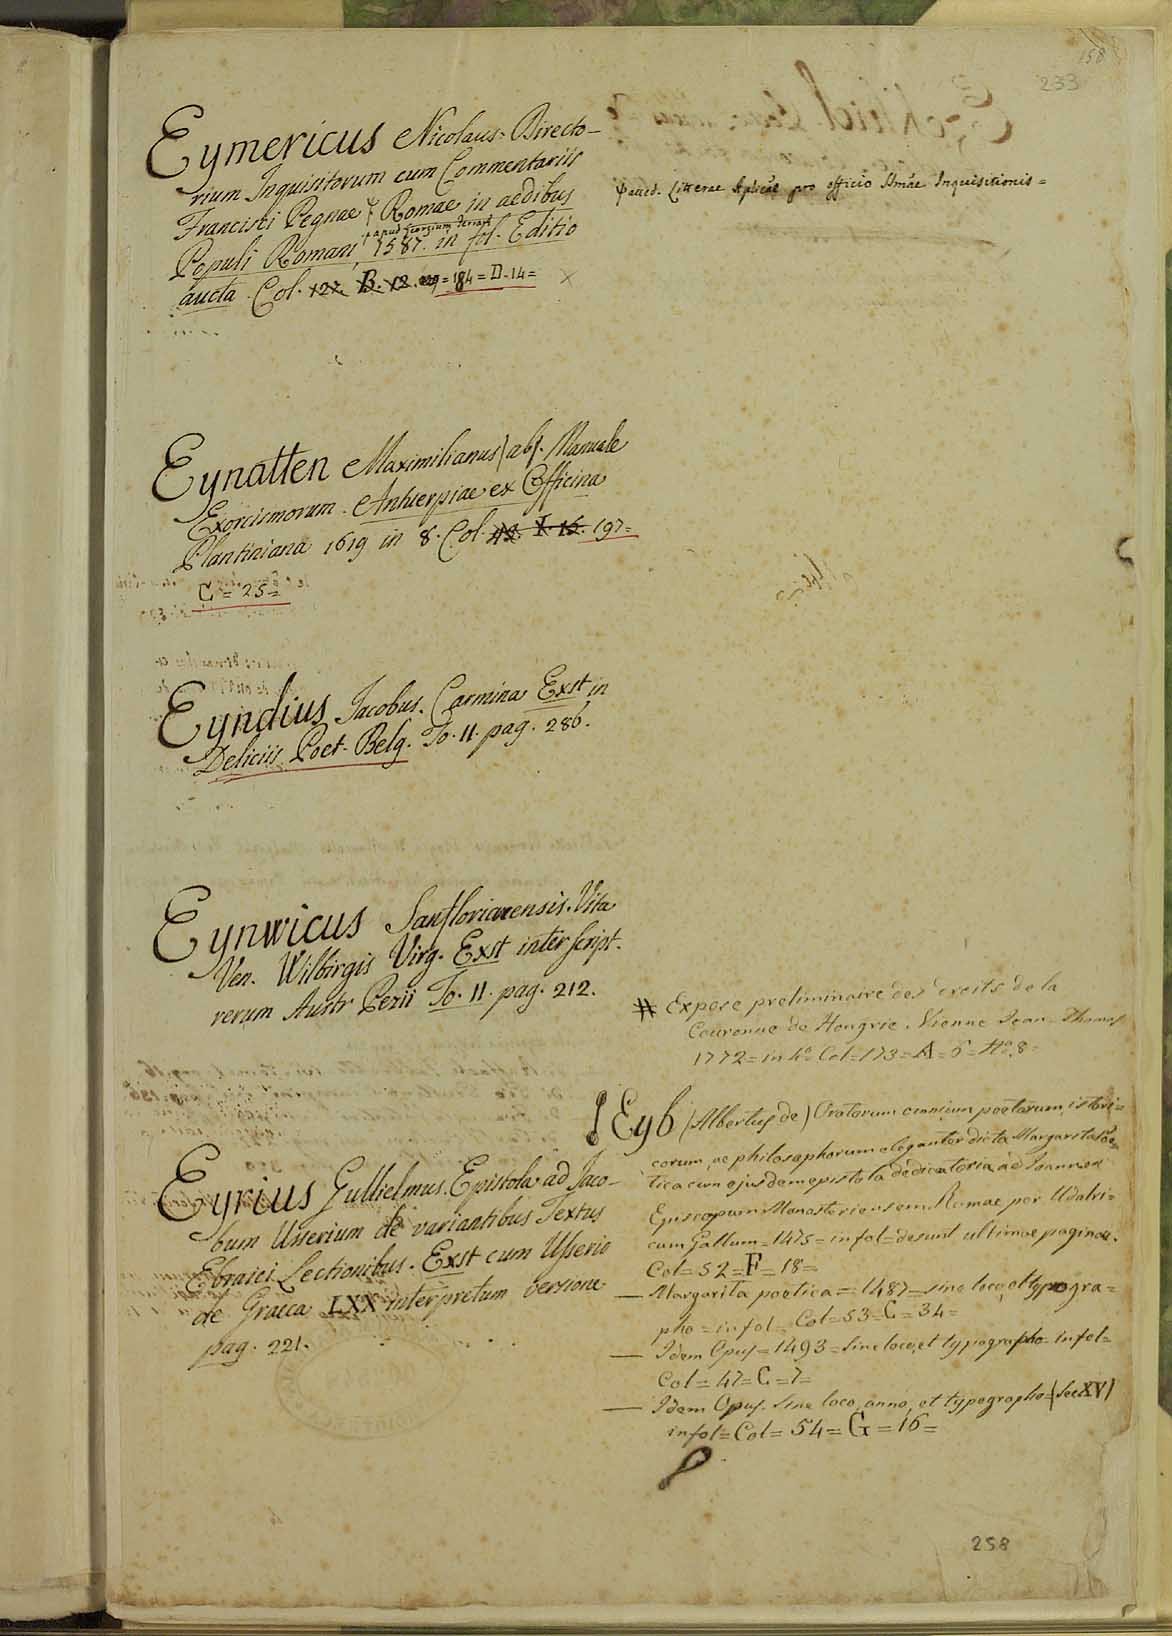 158
233
Eymericus Nicolaus. Directo-
rium Inquisitorum cum Commentariis
Francisci Pegnae ϕ Romae in aedibus
+ apud Georgium
Populi Romani, 1587. in fol. Editio
aucta. Col. 127. B. 12. = 184 = D. 14 =
ϕ acced. Litterae Aplicae pro officio Smae Inquisitionis =
Eynatten Maximilianus (ab). Manuale
Exorcismorum. Antuerpiae ex Officina
Plantiniana 1619 in 8. Col. I. 16. 197 =
C = 25 =
Eyndius Jacobus. Carmina Exst in
Deliciis Poet. Belg. To. II. pag. 286.
Eynwicus Sanflorianensis. Vita
Ven. Wilbirgis Virg. Exst inter Script.
rerum Austr Pezii To. II. pag. 212.
# Expose preliminaire des droits de la
Couronne de Hongrie. Vienne Jean Thomas
1772 = in 4° Col = 173 = A = 6 = N° 8 =
Eyb (Albertus de) Oratorum omnium poetarum, istori=
corum, ac philosophorum eleganter dicta Margarita Poe=
tica cum ejusdem epistola dedicatoria ad Joannem
Episcopum Monasteriensem Romae per Udalri=
cum Gallum = 1475 = in fol = desunt ultimae paginae.
Col = 52 = F = 18 =
— Margarita poetica = 1487 = sine loco, et typogra=
pho = in fol = Col = 53 = C = 34 =
— Idem Opus = 1493 = sine loco, et typographo = in fol =
Col = 47 = C = 7 =
— Idem Opus. Sine loco, anno, et typographo = (Sec XV)
in fol = Col = 54 = G = 16 =
Eyrius Gullielmus. Epistola ad Jaco-
bum Usserium de variantibus Textus
Ebraici Lectionibus. Exst cum Usserio
de Graeca LXX interpretum versione
pag. 221.
258